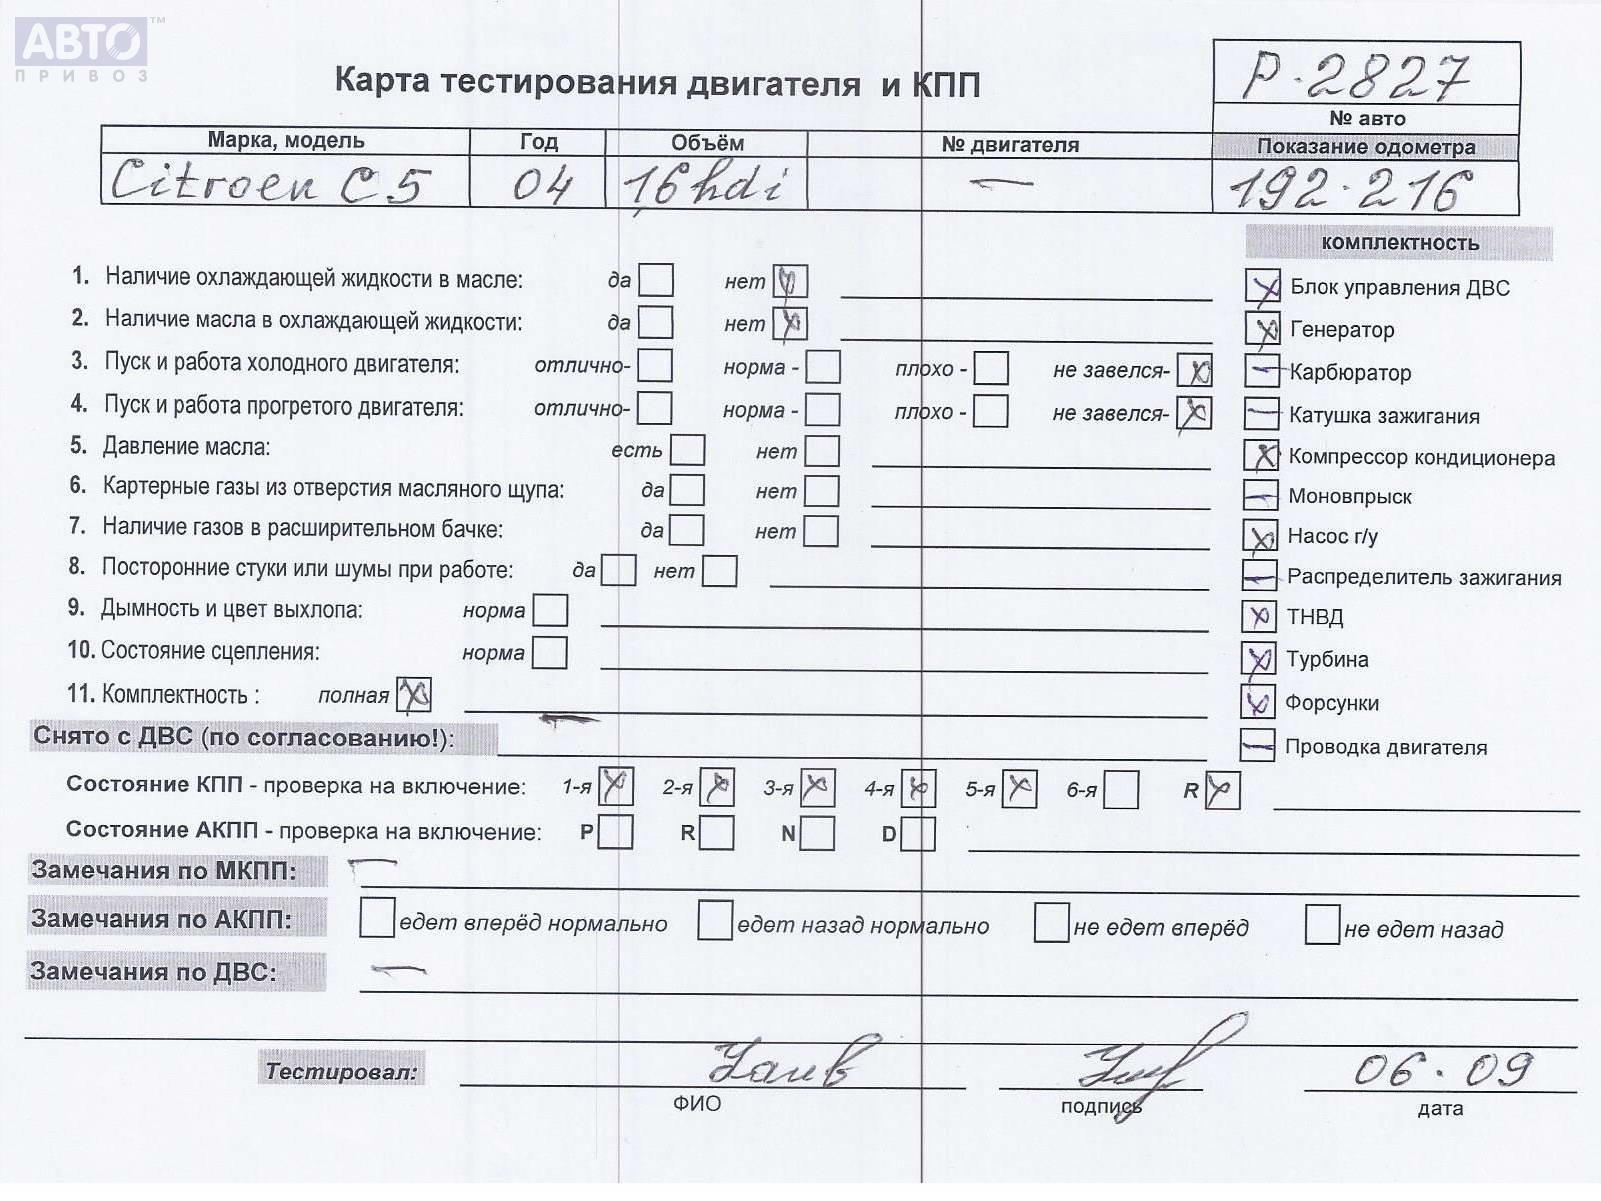 АВТО™
ПРИВОЗ
Карта тестирования двигателя и КПП
P-2827
№ авто
Марка, модель Год Объём № двигателя Показание одометра
Citroen C5 04 1,6hdi — 192.216
комплектность
1. Наличие охлаждающей жидкости в масле: да нет
Блок управления ДВС
2. Наличие масла в охлаждающей жидкости: да нет
Генератор
3. Пуск и работа холодного двигателя: отлично- норма - плохо - не завелся-
Карбюратор
4. Пуск и работа прогретого двигателя: отлично- норма - плохо - не завелся-
Катушка зажигания
5. Давление масла: есть нет
Компрессор кондиционера
6. Картерные газы из отверстия масляного щупа: да нет
Моновпрыск
7. Наличие газов в расширительном бачке: да нет
Насос г/у
8. Посторонние стуки или шумы при работе: да нет
Распределитель зажигания
9. Дымность и цвет выхлопа: норма
ТНВД
10. Состояние сцепления: норма
Турбина
11. Комплектность : полная
Форсунки
Снято с ДВС (по согласованию!): —
Проводка двигателя
Состояние КПП - проверка на включение: 1-я 2-я 3-я 4-я 5-я 6-я R
Состояние АКПП - проверка на включение: P R N D
Замечания по МКПП: —
Замечания по АКПП: едет вперёд нормально едет назад нормально не едет вперёд не едет назад
Замечания по ДВС: —
Тестировал: 06.09
ФИО подпись дата